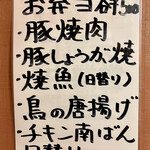 お弁当 各500
・豚焼肉
・豚しょうが焼
・焼魚(日替り)
・鳥の唐揚げ
・チキン南ばん